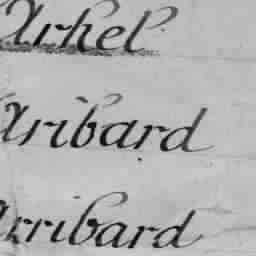 Arhel
Aribard
Arribard